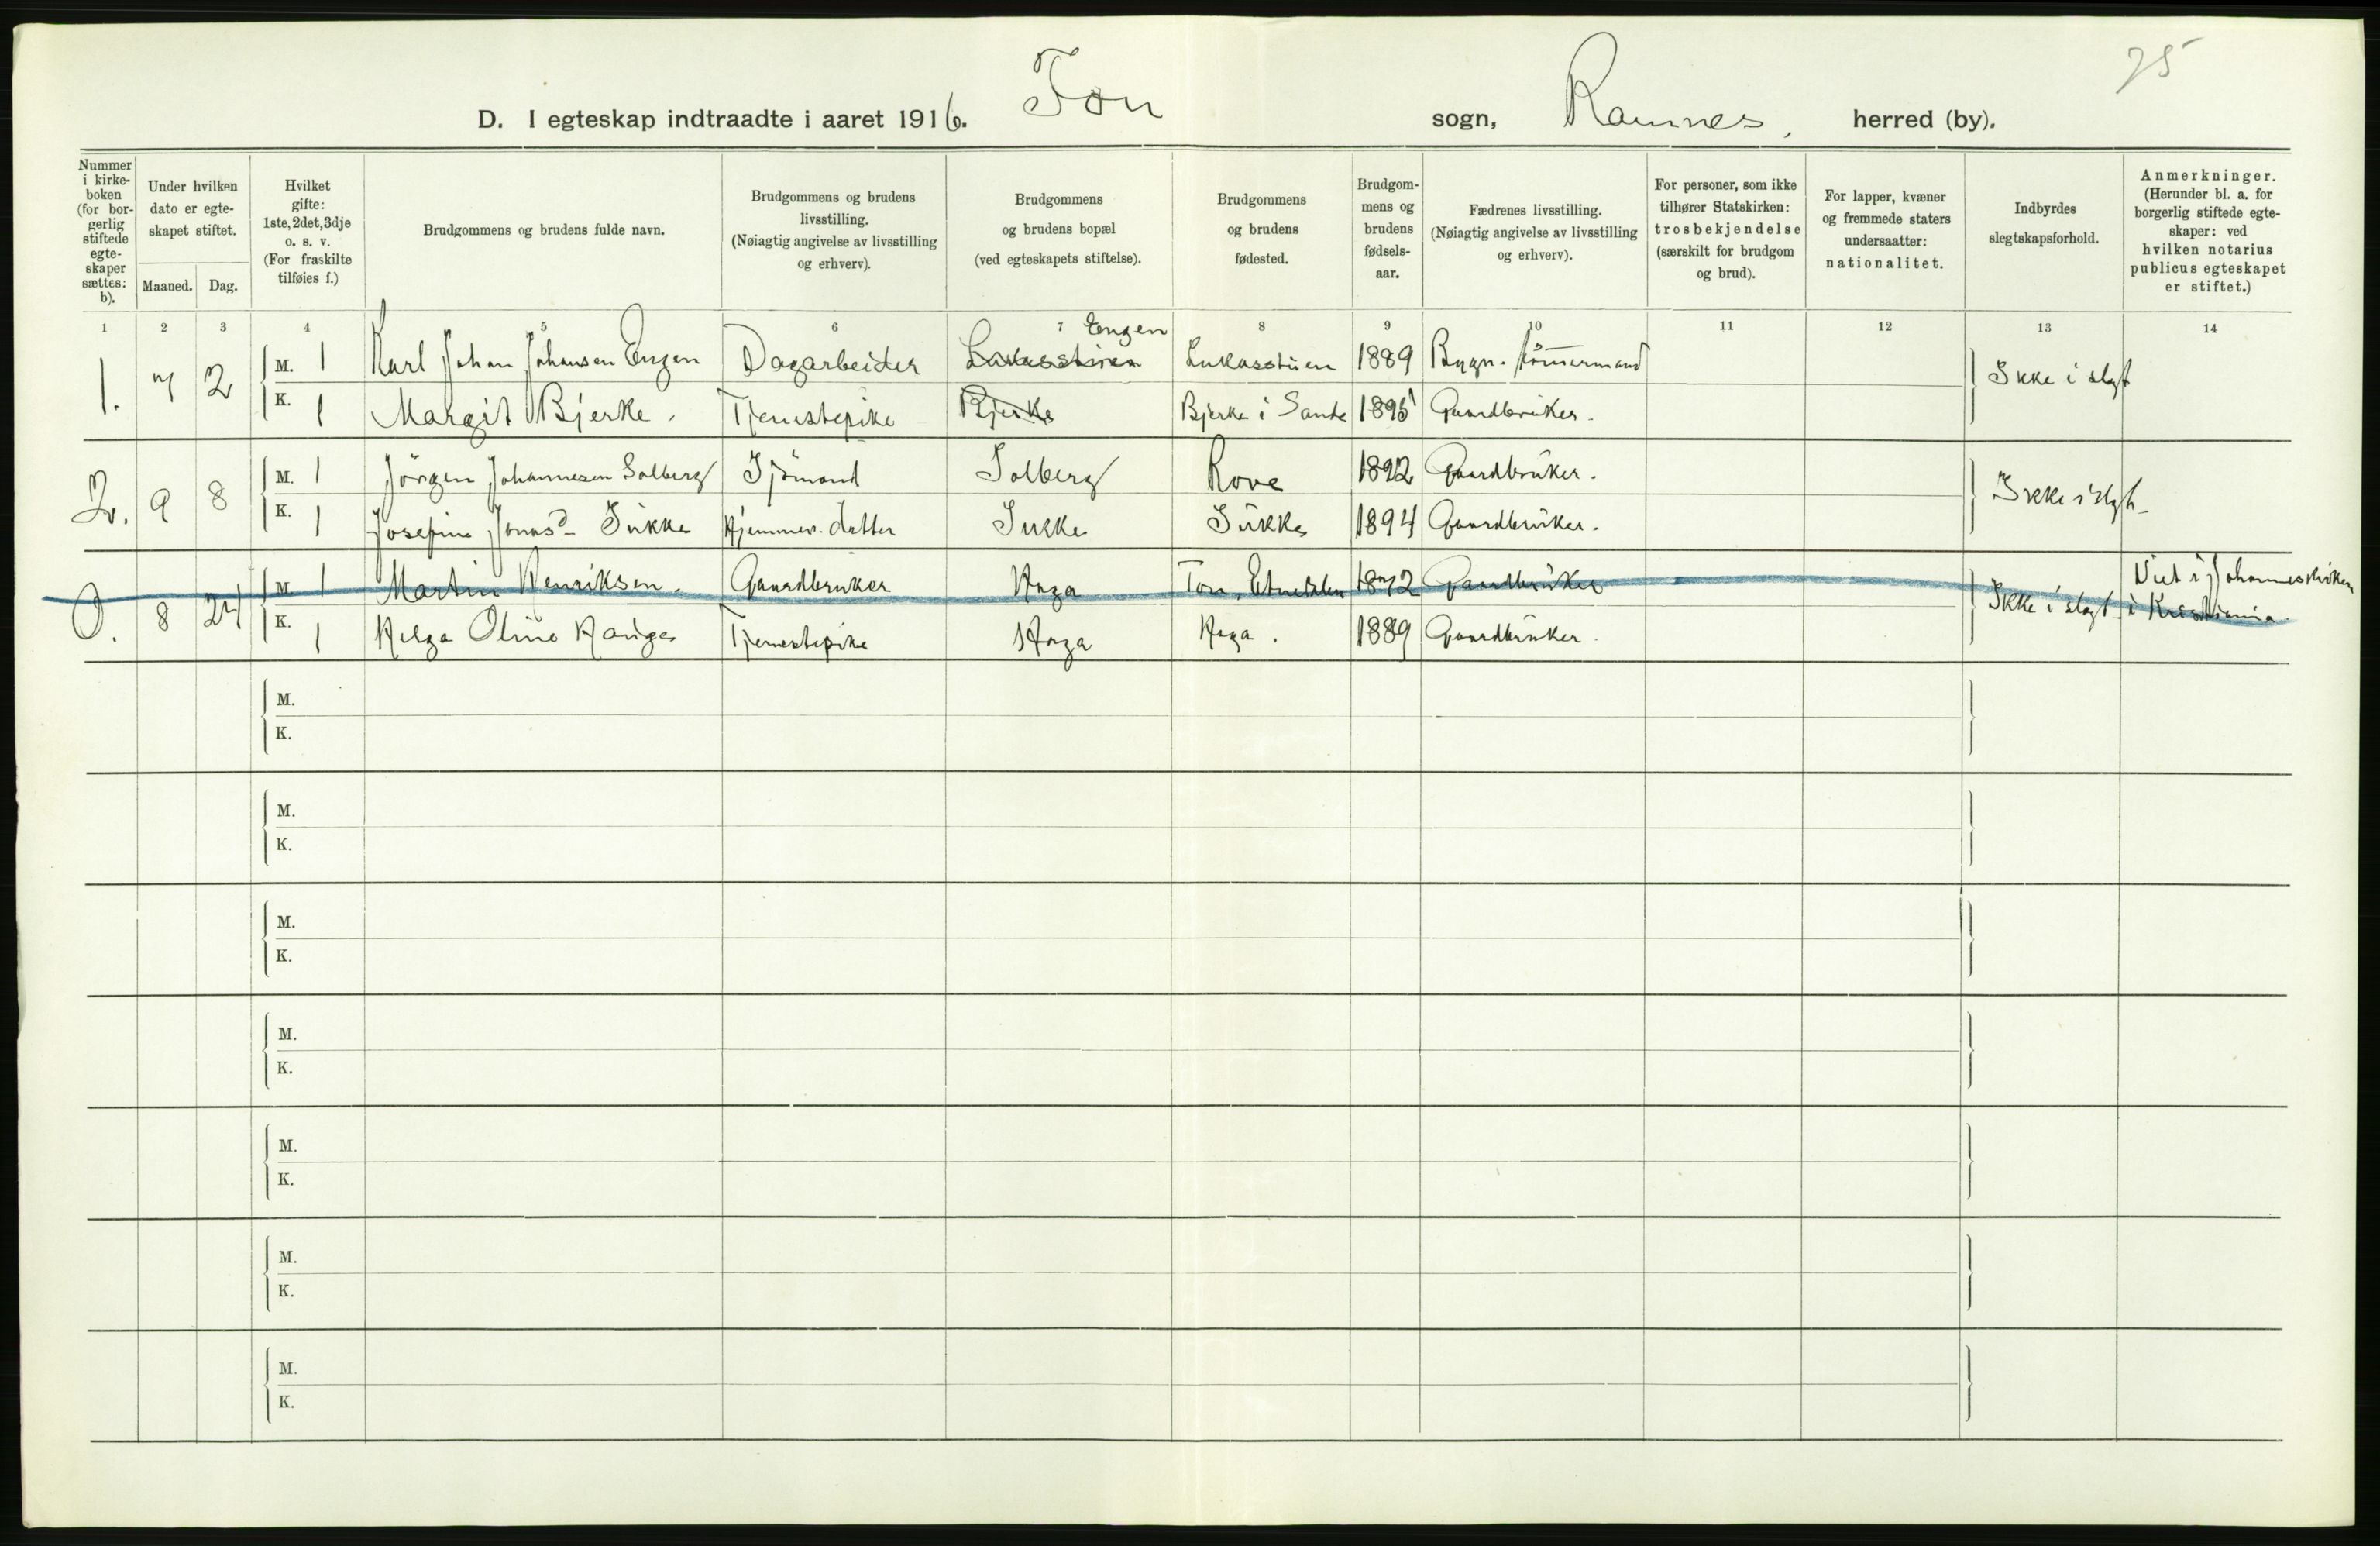 75
D. I egteskap indtraadte i aaret 1916. Fon sogn, Ramnes, herred (by).
Nummer i kirkeboken (for borgerlig stiftede egteskaper sættes: b).
Under hvilken dato er egteskapet stiftet.
Maaned. Dag.
Hvilket gifte: 1ste, 2det, 3dje o. s. v. (For fraskilte tilføies f.)
Brudgommens og brudens fulde navn.
Brudgommens og brudens livsstilling. (Nøiagtig angivelse av livsstilling og erhverv).
Brudgommens og brudens bopæl (ved egteskapets stiftelse).
Brudgommens og brudens fødested.
Brudgommens og brudens fødselsaar.
Fædrenes livsstilling. (Nøiagtig angivelse av livsstilling og erhverv).
For personer, som ikke tilhører Statskirken: trosbekjendelse (særskilt for brudgom og brud).
For lapper, kvæner og fremmede staters undersaatter: nationalitet.
Indbyrdes slegtskapsforhold.
Anmerkninger. (Herunder bl. a. for borgerlig stiftede egteskaper: ved hvilken notarius publicus egteskapet er stiftet.)
1 2 3 4 5 6 7 8 9 10 11 12 13 14
Engen
1. 7 2 M. 1 Karl Johan Johansen Engen Dagarbeider Lukasstuen Lukasstuen 1889 Bygn. tömmermand Ikke i slegt
K. 1 Margit Bjerke. Tjenestepike Bjerke Bjerke i Sande 1895 Gaardbruker.
2. 9 8 M. 1 Jörgen Johannesen Solberg Sjömand Solberg Rove 1892 Gaardbruker. Ikke i slegt
K. 1 Josefine Jonasd. Sukke Hjemmev. datter Sukke Sukke 1894 Gaardbruker.
0. 8 24 M. 1 Martin Henriksen. Gaardbruker Haga Ton, Etnedalen 1872 Gaardbruker Ikke i slegt. Viet i Johanneskirken i Kristiania.
K. 1 Helga Oline Hauges Tjenestepike Haga Haga. 1889 Gaardbruker.
M.
K.
M.
K.
M.
K.
M.
K.
M.
K.
M.
K.
M.
K.